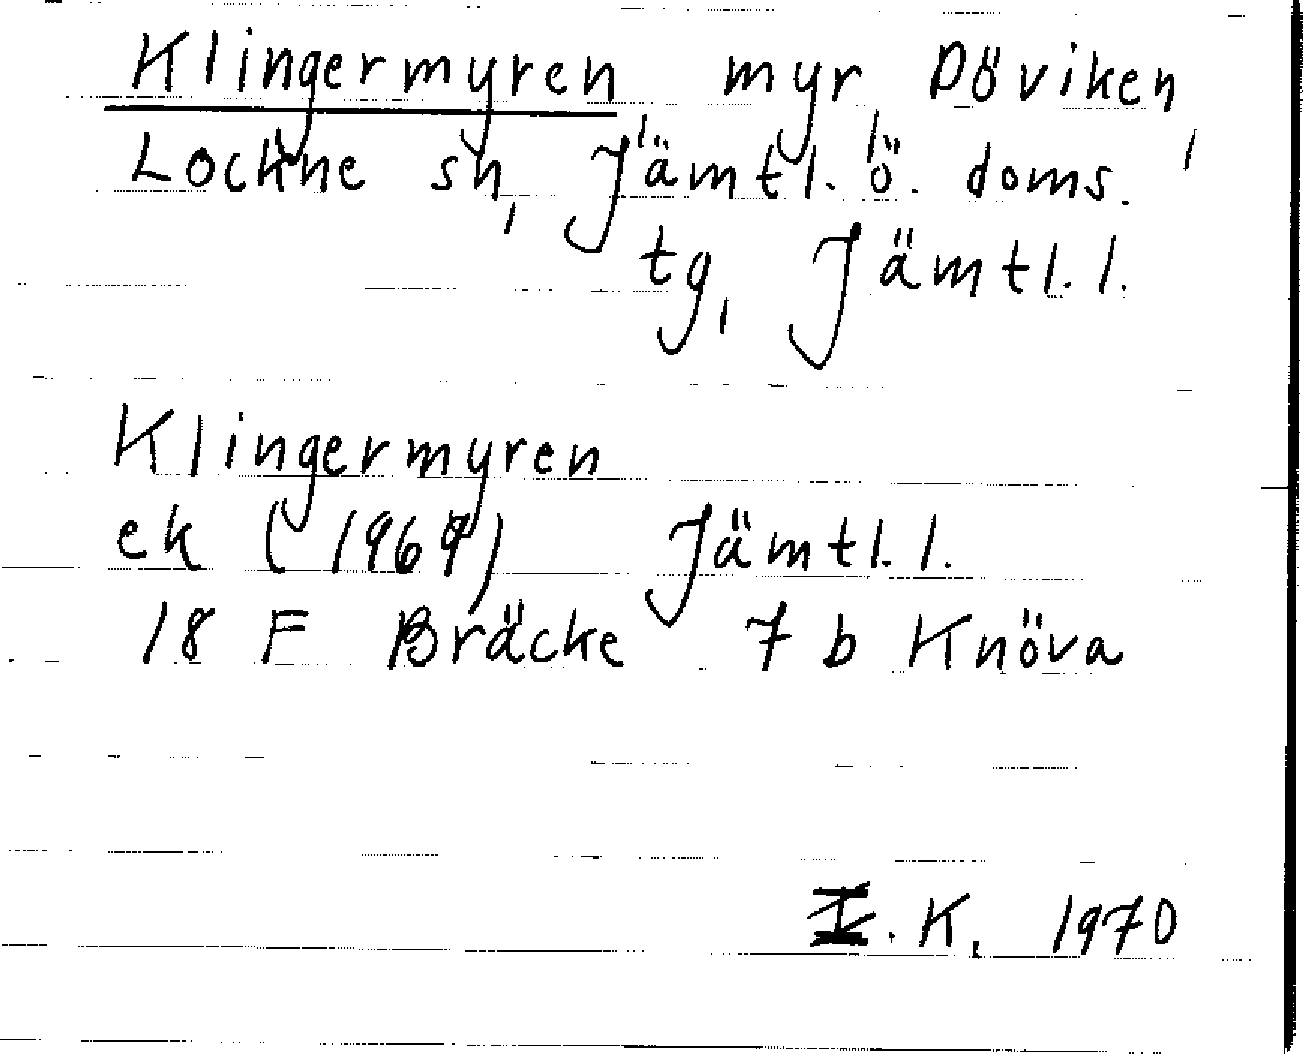 Klingermyren, myr, Döviken,
Lockne sn, Jämtl. ö. doms.
tg, Jämtl. l.
Klingermyren
ek (1969) Jämtl. l.
18 F Bräcke 7 b Knöva
I. K. 1970